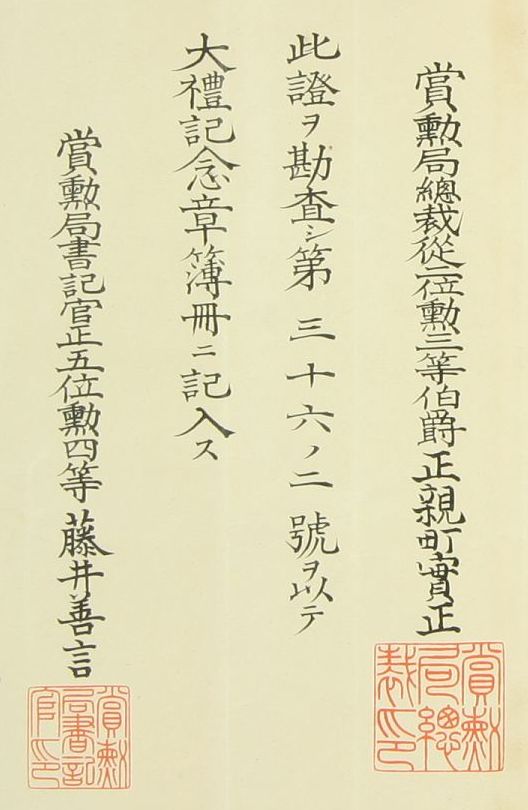 賞勲局總裁從二位勲三等伯爵正親町實正
賞勲局總裁印
此證ヲ勘査シ第三十六ノ二號ヲ以テ
大禮記念章簿冊ニ記入ス
賞勲局書記官正五位勲四等藤井善言
賞勲局書記官印